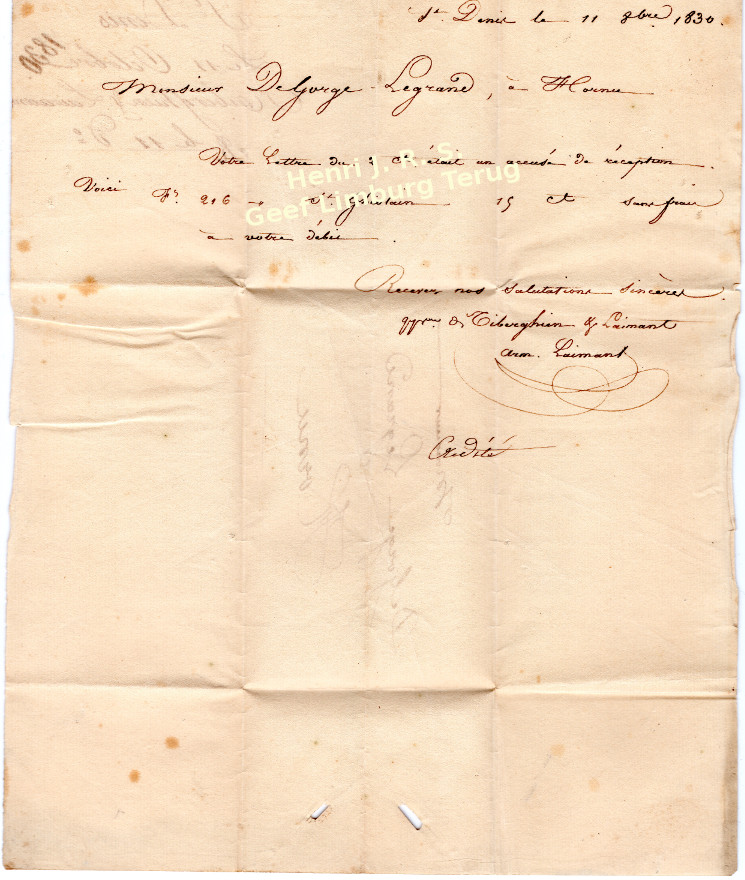 St. Denis le 11 8bre 1830.
Monsieur DeGorge-Legrand, à Hornu
Votre Lettre du 2 Ct. était un accusé de réception.
Voici Fs. 216 -„ St. Ghislain 15 ct sans frais
à votre débit.
Recevez nos salutations sincères
ppon. de Tiberghien & Laimant
Arm. Laimant
Crédité
Henri J. R. S.
Geef Limburg Terug
1830
St. Denis
le 11 Octobre